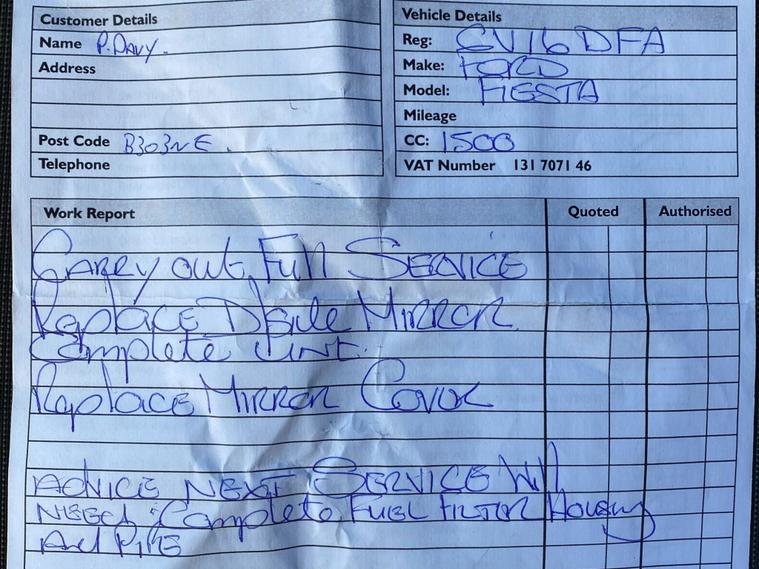 Customer Details
Name P. DAVY.
Address
Post Code B303NE.
Telephone
Vehicle Details
Reg: CV16 DFA
Make: FORD
Model: FIESTA
Mileage
CC: 1500
VAT Number 131 7071 46
Work Report Quoted Authorised
CARRY out Full SERVICE
Replace D/Side MIRROR
Complete Unit.
Replace MIRROR Cover
ADVICE NEXT SERVICE Will
NEED Complete FUEL FILTER Housing
And PIPE